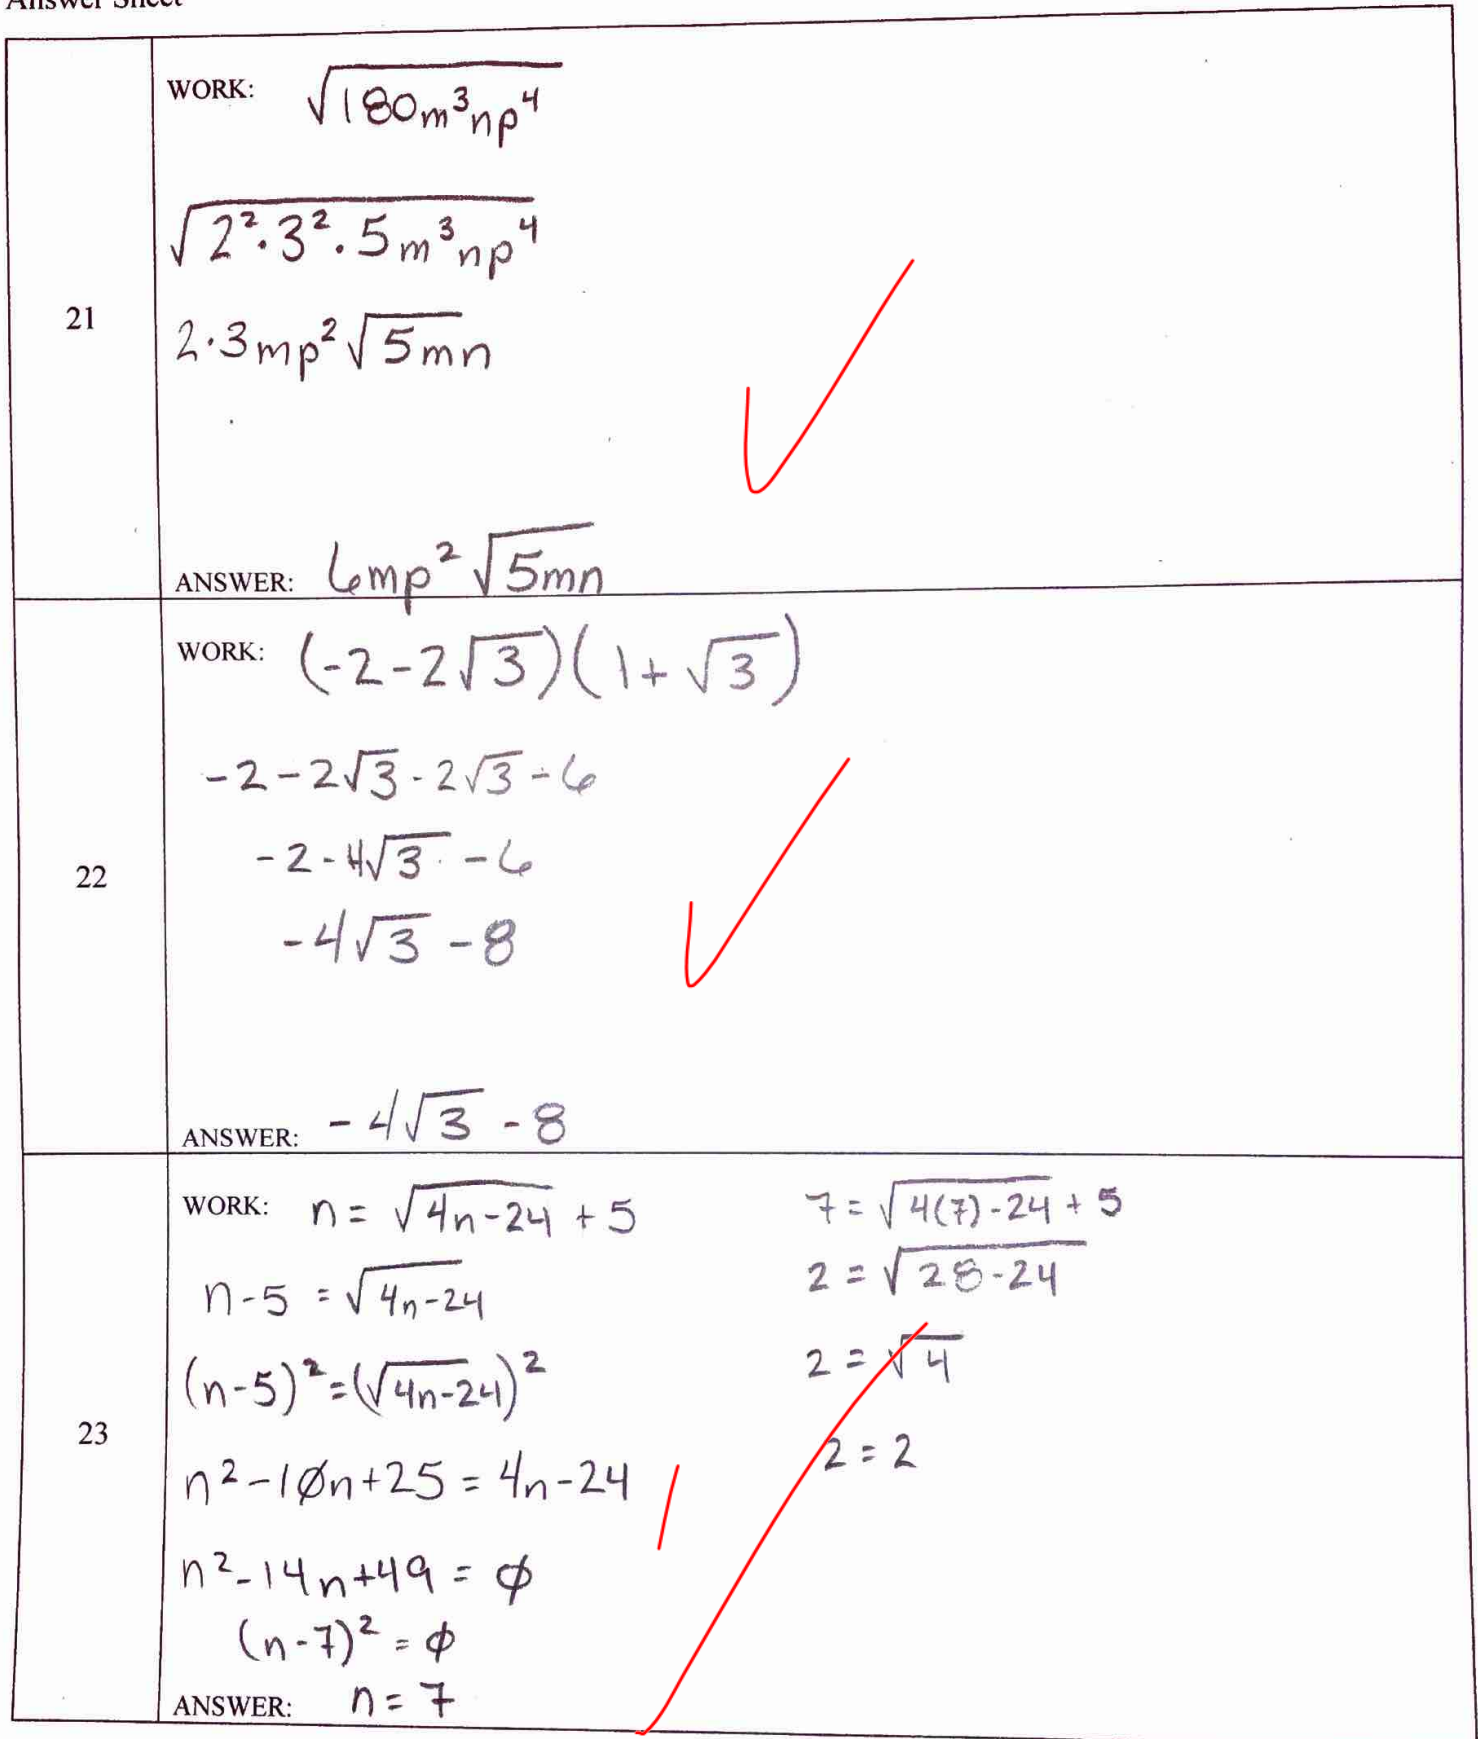 Answer Sheet
21
WORK: √180m³np⁴
√2²·3²·5m³np⁴
2·3mp²√5mn
ANSWER: 6mp²√5mn
22
WORK: (-2-2√3)(1+√3)
-2-2√3-2√3-6
-2-4√3-6
-4√3-8
ANSWER: -4√3-8
23
WORK: n=√4n-24+5
n-5=√4n-24
(n-5)²=(√4n-24)²
n²-10n+25=4n-24
n²-14n+49=0
(n-7)²=0
ANSWER: n=7
7=√4(7)-24+5
2=√28-24
2=√4
2=2